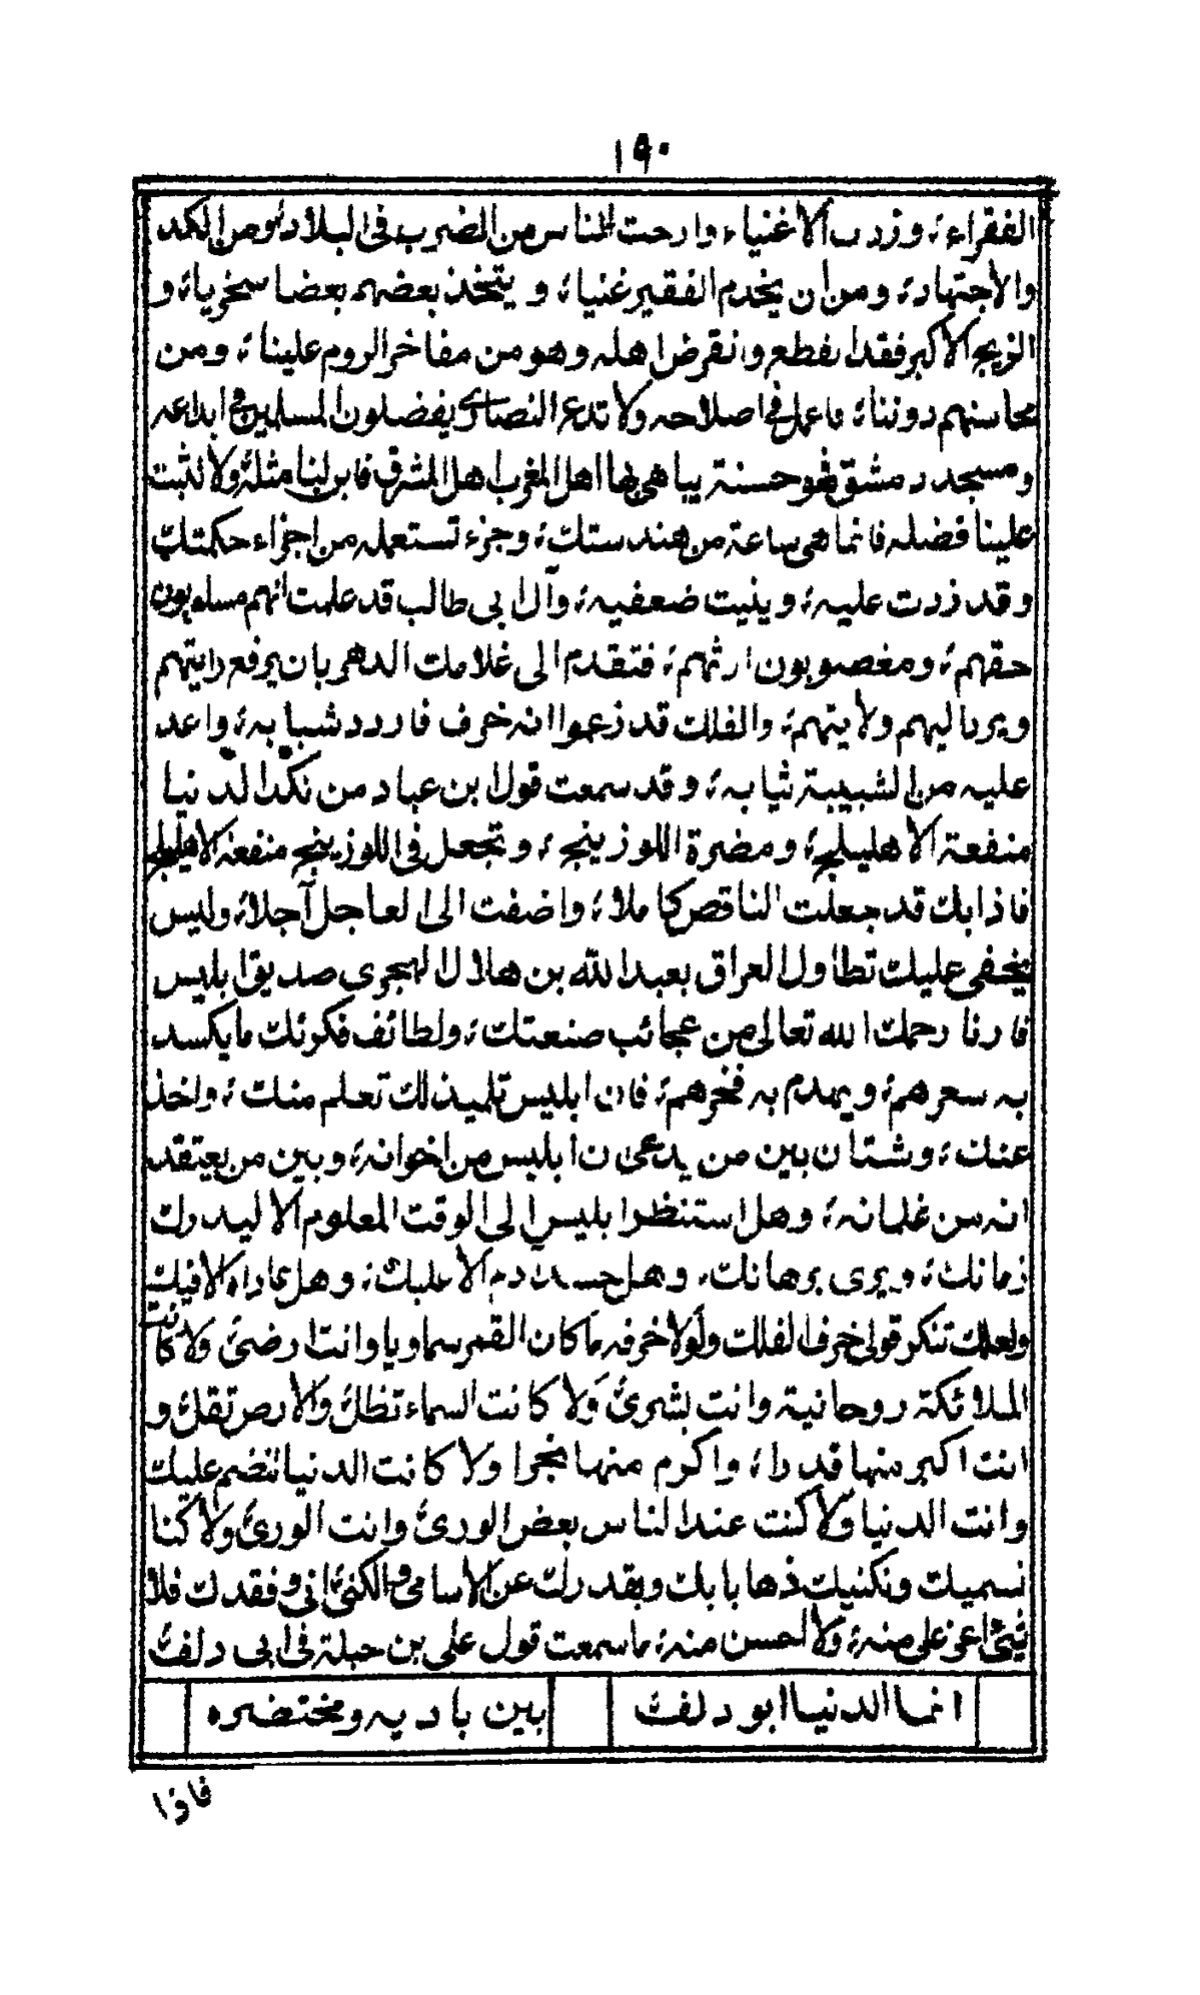 ١٩٠
الفقراء، وزدت الاغنياء، وارحت الناس من الضرب فى البلاد، ومن الكد
والاجتهاد، ومن ان يخدم الفقير غنيا، و يتخذ بعضهم بعضا سخريا، و
الزيج الاكبر فقد انقطع وانقرض اهله وهو من مفاخر الروم علينا، ومن
محاسنهم دوننا، فاعمل فى اصلاحه ولا تدع النصارى يفضلون المسلمين فى ابداعه
ومسجد دمشق فهو حسنة يباهى بها اهل المغرب اهل المشرق فابن لنا مثله ولا تثبت
علينا فضله فانما هى ساعة من هندستك، وجزء تستعمله من اجزاء حكمتك
وقد زدت عليه، وبنيت ضعفيه، وآل ابى طالب قد علمت انهم مسلوبون
حقهم، ومغصوبون ارثهم، فتقدم الى غلامك الدهر بان يرفع رايتهم
ويرد اليهم ولايتهم، والفلك قد زعموا انه خرف فاردد شبابه، واعد
عليه من الشبيبة ثيابه، وقد سمعت قول ابن عباد من نكد الدنيا
منفعة الاهليلج، ومضرة اللوزينج، وتجعل فى اللوزينج منفعة الاهليلج
فاذا بك قد جعلت الناقص كاملا، واضفت الى العاجل آجلا، وليس
يخفى عليك تطاول العراق بعبد الله بن هلال الهجرى صديق ابليس
فارنا رحمك الله تعالى من عجائب صنعتك، ولطائف فكرتك ما يكسد
به سعرهم، ويهدم به فخرهم، فان ابليس تلميذ لك تعلم منك، واخذ
عنك، وشتان بين من يدعى ن ابليس من اخوانه، وبين من يعتقد
انه من غلمانه، وهل استنظر ابليس الى الوقت المعلوم الا ليدرك
زمانك، ويرى برهانك، وهل حسد ادم الا عليك، وهل عاداه الا فيك
ولعلك تنكر قولى خرف الفلك ولولا خرفه ما كان القمر سماويا وانت ارضى، ولا كانت
الملائكة روحانية وانت بشرى، ولا كانت السماء تظلك والارض تقلك و
انت اكبر منها قدرا، واكرم منها نجرا ولا كانت الدنيا تنضم عليك
وانت الدنيا ولا كنت عند الناس بعض الورى، وانت الورى، ولا كنا
نسميك ونكنيك ذهابا بك وبقدرك عن الاسامى والكنى، انى وفقدك فلا
شئ اعز على منه، ولا احسن منه، ما سمعت قول على بن جبلة فى ابى دلف
انما الدنيا ابو دلف بين باديه ومحتضره
فاذا